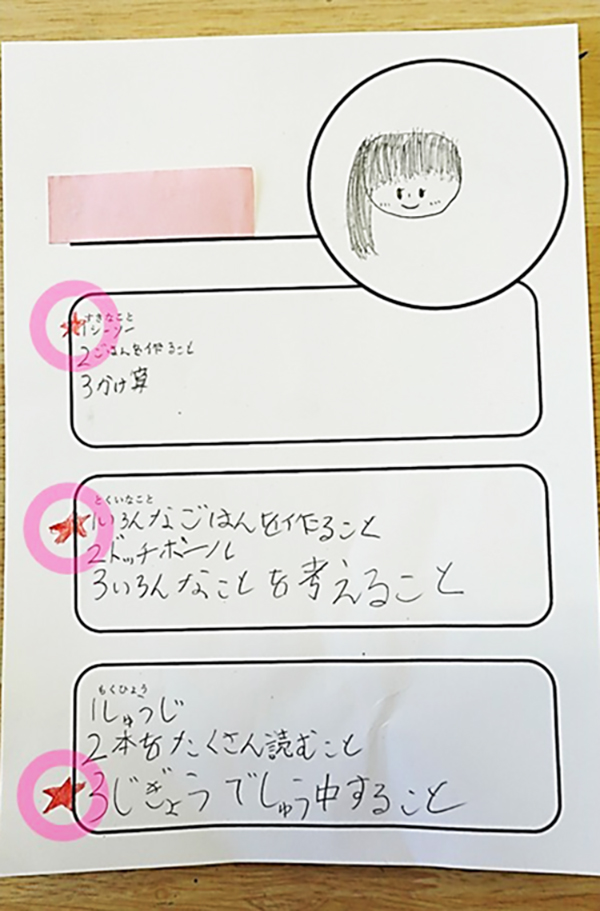 すきなこと
1シーソー
2ごはんを作ること
3かけ算
とくいなこと
1いろんなごはんを作ること
2ドッチボール
3いろんなことを考えること
もくひょう
1しゅうじ
2本をたくさん読むこと
3じぎょうでしゅう中すること